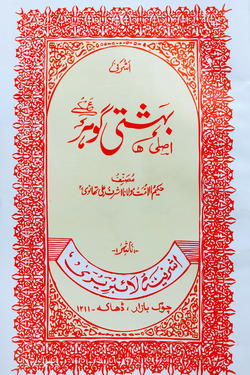 اشرفی
بہشتی گوہر
اصلی
مصنف
حکیم الامت مولانا اشرف علی تھانوی
ناشر
اشرفیہ لائبریری
چوک بازار، ڈھاکہ - ۱۲۱۱